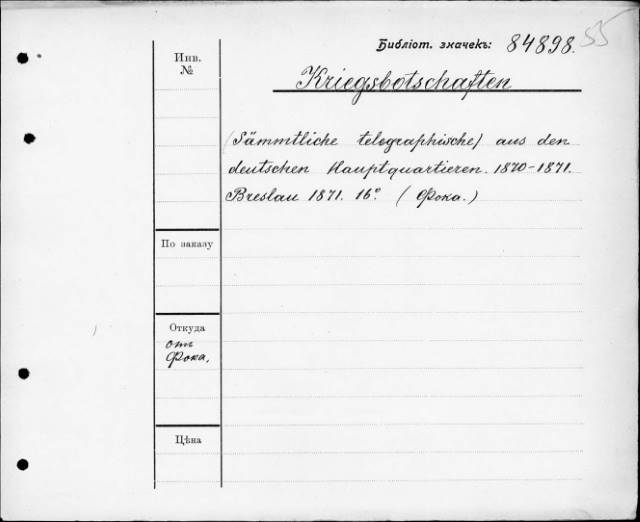 Библіот. значекъ: 84898. 55
Инв.
№
Kriegsbotschaften
(Sämmtliche telegraphische) aus den
deutschen Hauptquartieren. 1870-1871.
Breslau 1871. 16°. (Фока.)
По заказу
Откуда
отъ
Фока.
Цѣна